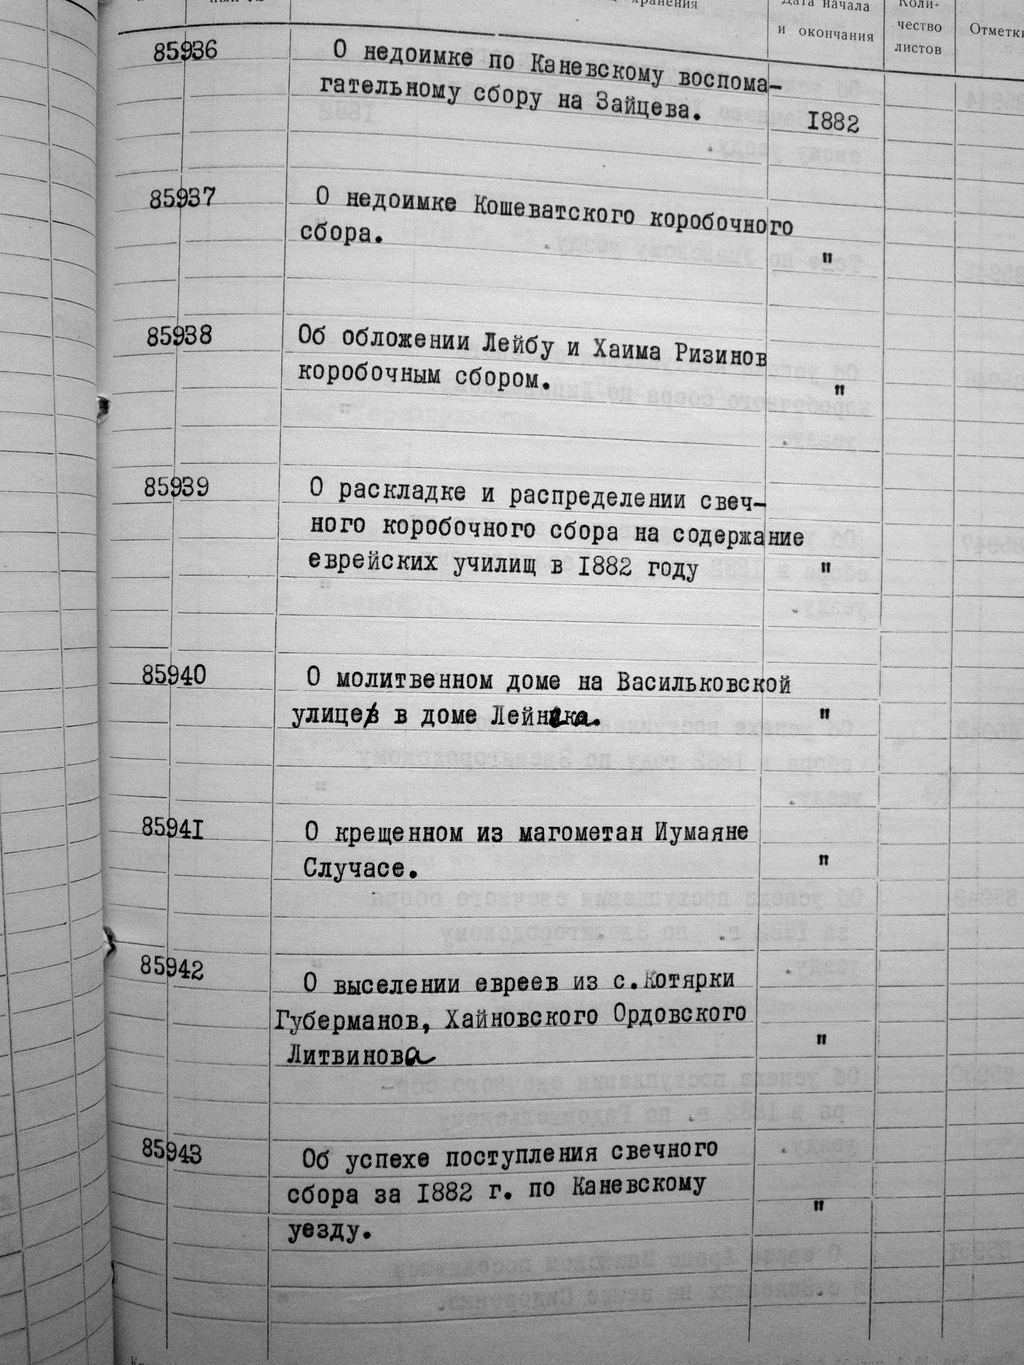 хранения
Дата начала
и окончания
Коли-
чество
листов
Отметки
85936
О недоимке по Каневскому воспома-
гательному сбору на Зайцева.
1882
85937
О недоимке Кошеватского коробочного
сбора.
"
85938
Об обложении Лейбу и Хаима Ризинов
коробочным сбором.
"
85939
О раскладке и распределении свеч-
ного коробочного сбора на содержание
еврейских училищ в 1882 году
"
85940
О молитвенном доме на Васильковской
улице в доме Лейника.
"
85941
О крещенном из магометан Иумаяне
Случасе.
"
85942
О выселении евреев из с.Котярки
Губерманов, Хайновского Ордовского
Литвинова
"
85943
Об успехе поступления свечного
сбора за 1882 г. по Каневскому
уезду.
"